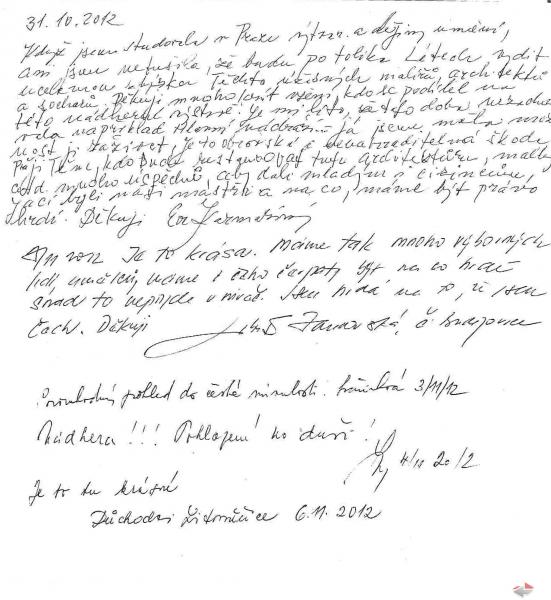 31. 10. 2012
Když jsem studovala v Praze výtvar. a dějiny umění,
ani jsem netušila, že budu po tolika létech vidět
ucelenou sbírku těchto krásných malířů, architektů
a sochařů. Děkuji mnohokrát všem, kdo se podílel na
této nádherné výstavě. Je mi líto, že této doby
například Hlavní nádraží. Já jsem měla mož
nost ji zažívat, je to obrovská a nenahraditelná škoda
Přeji Těm, kdo bude restaurovat tuto architekturu, malby
atd. mnoho úspěchů, aby dali mladým i cizincům,
jací byli naši mistři a na co, máme být právo
hrdí. Děkuji Eva
2012 Je to krása. Máme tak mnoho výborných
lidí, umělců, máme z čeho čerpat, být na co hrdí
snad to nepřijde v niveč. Jsem hrdá na to, že jsem
Čech. Děkuji
pohled do české minulosti. 3/11/12
Nádhera!!! Pohlazení na duši!
4/11 2012
Je to tu krásné
Důchodci Žitomčice 6.11. 2012